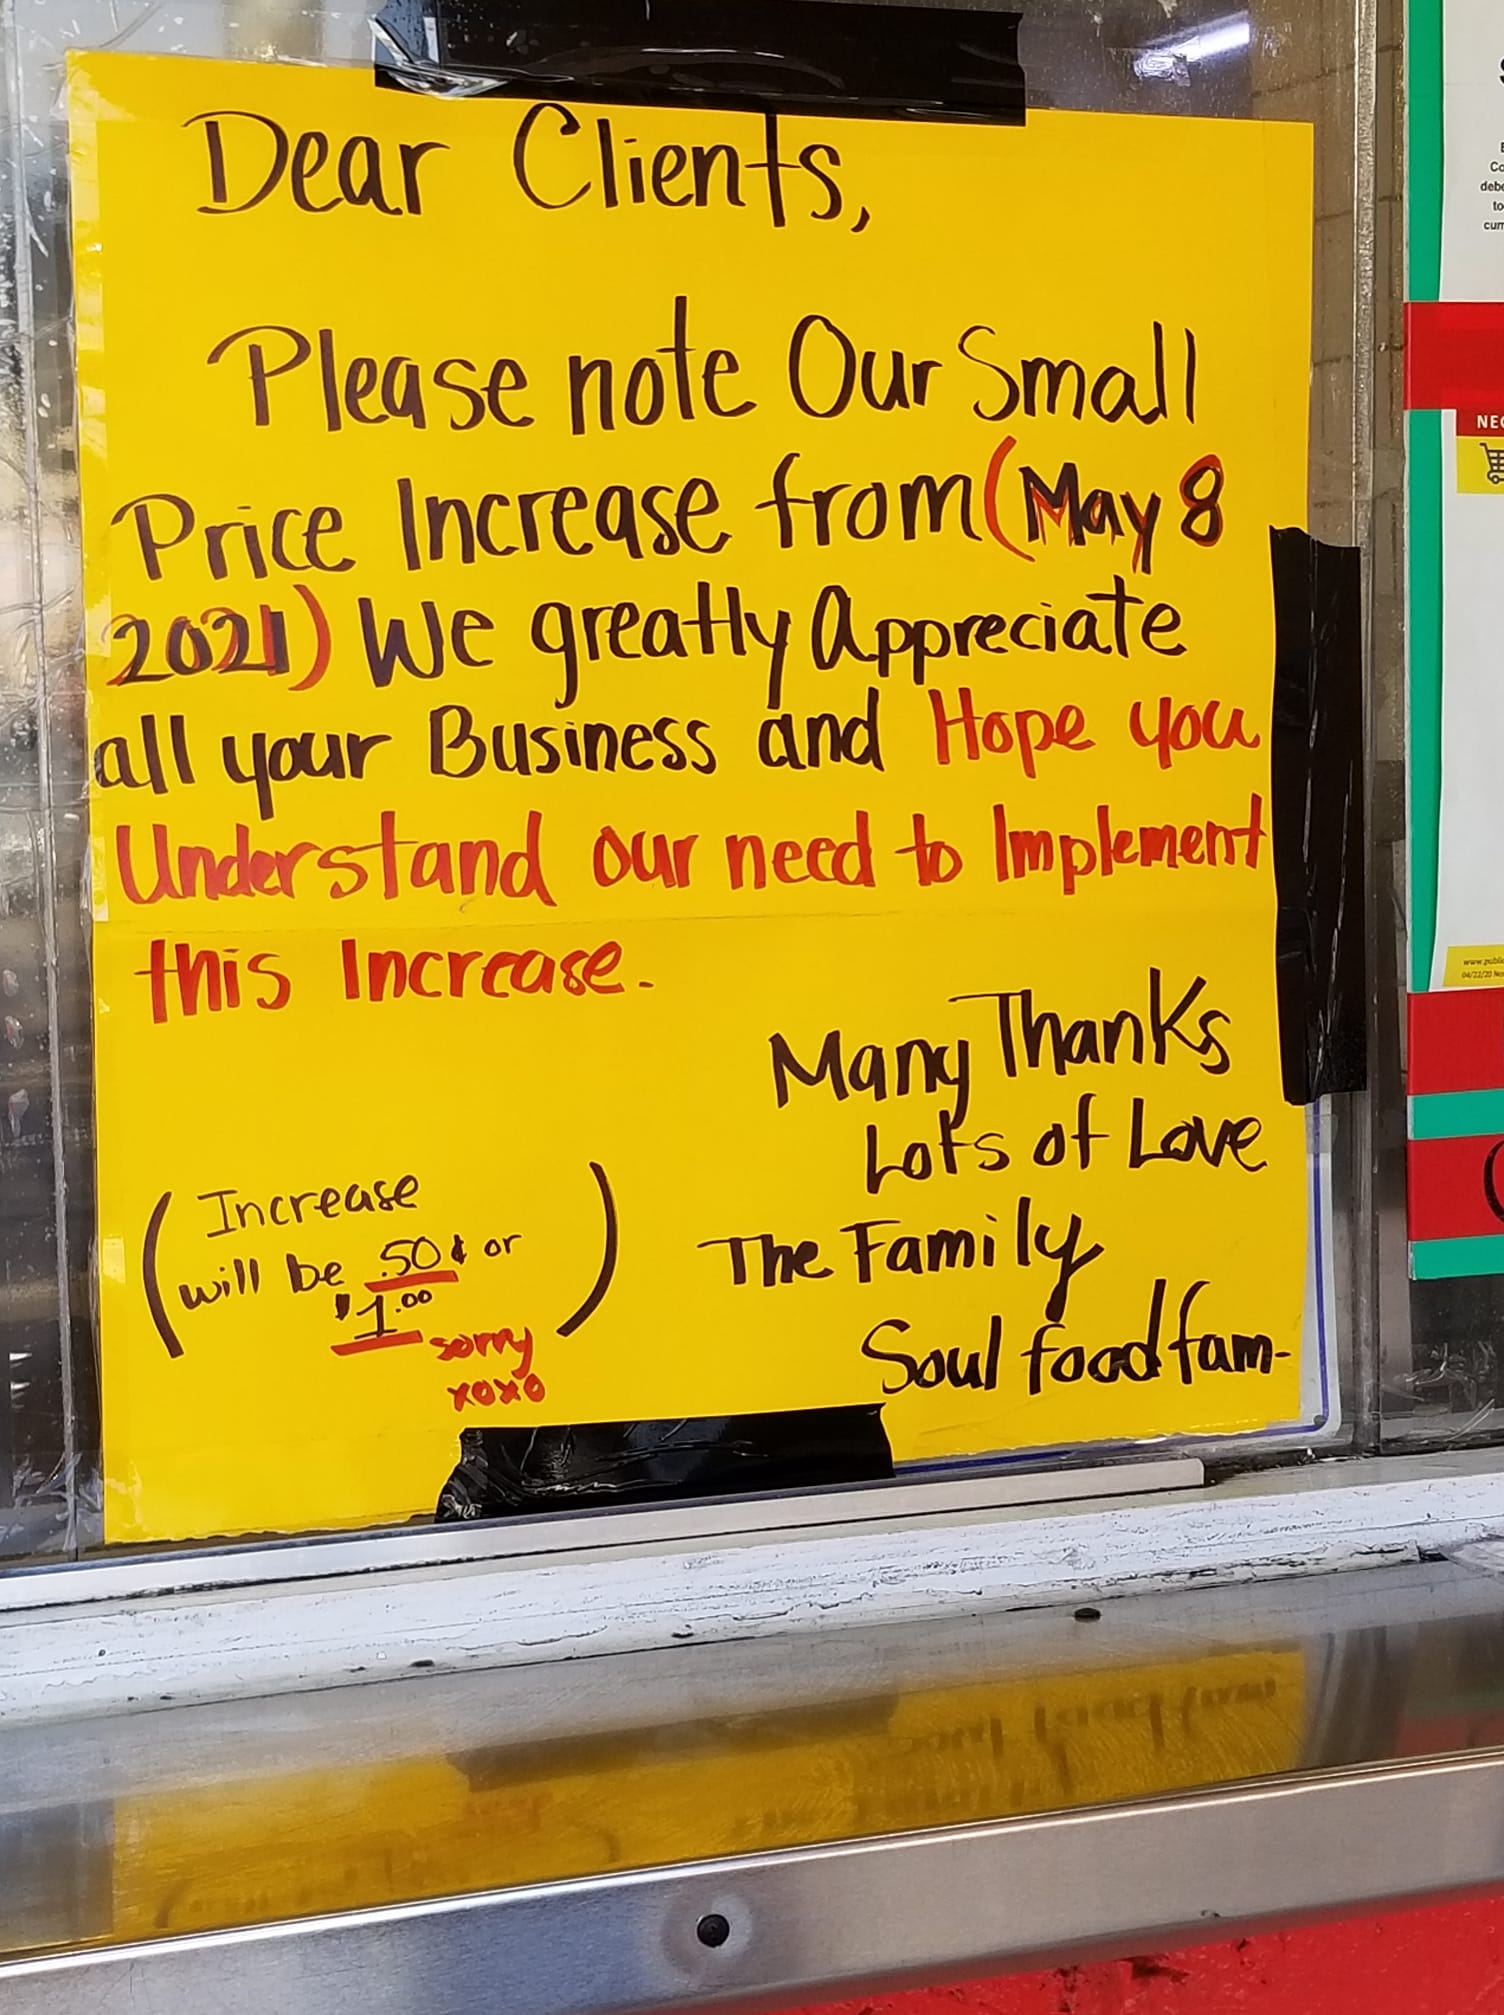 Dear Clients,
Please note Our Small
Price Increase from (May 8
2021) We greatly Appreciate
all your Business and Hope you
Understand our need to Implement
this Increase.
Many Thanks
Lots of Love
The Family
Soul food fam-
(Increase
will be .50¢ or
$1.00)
sorry
xoxo
NEG
04/22/20